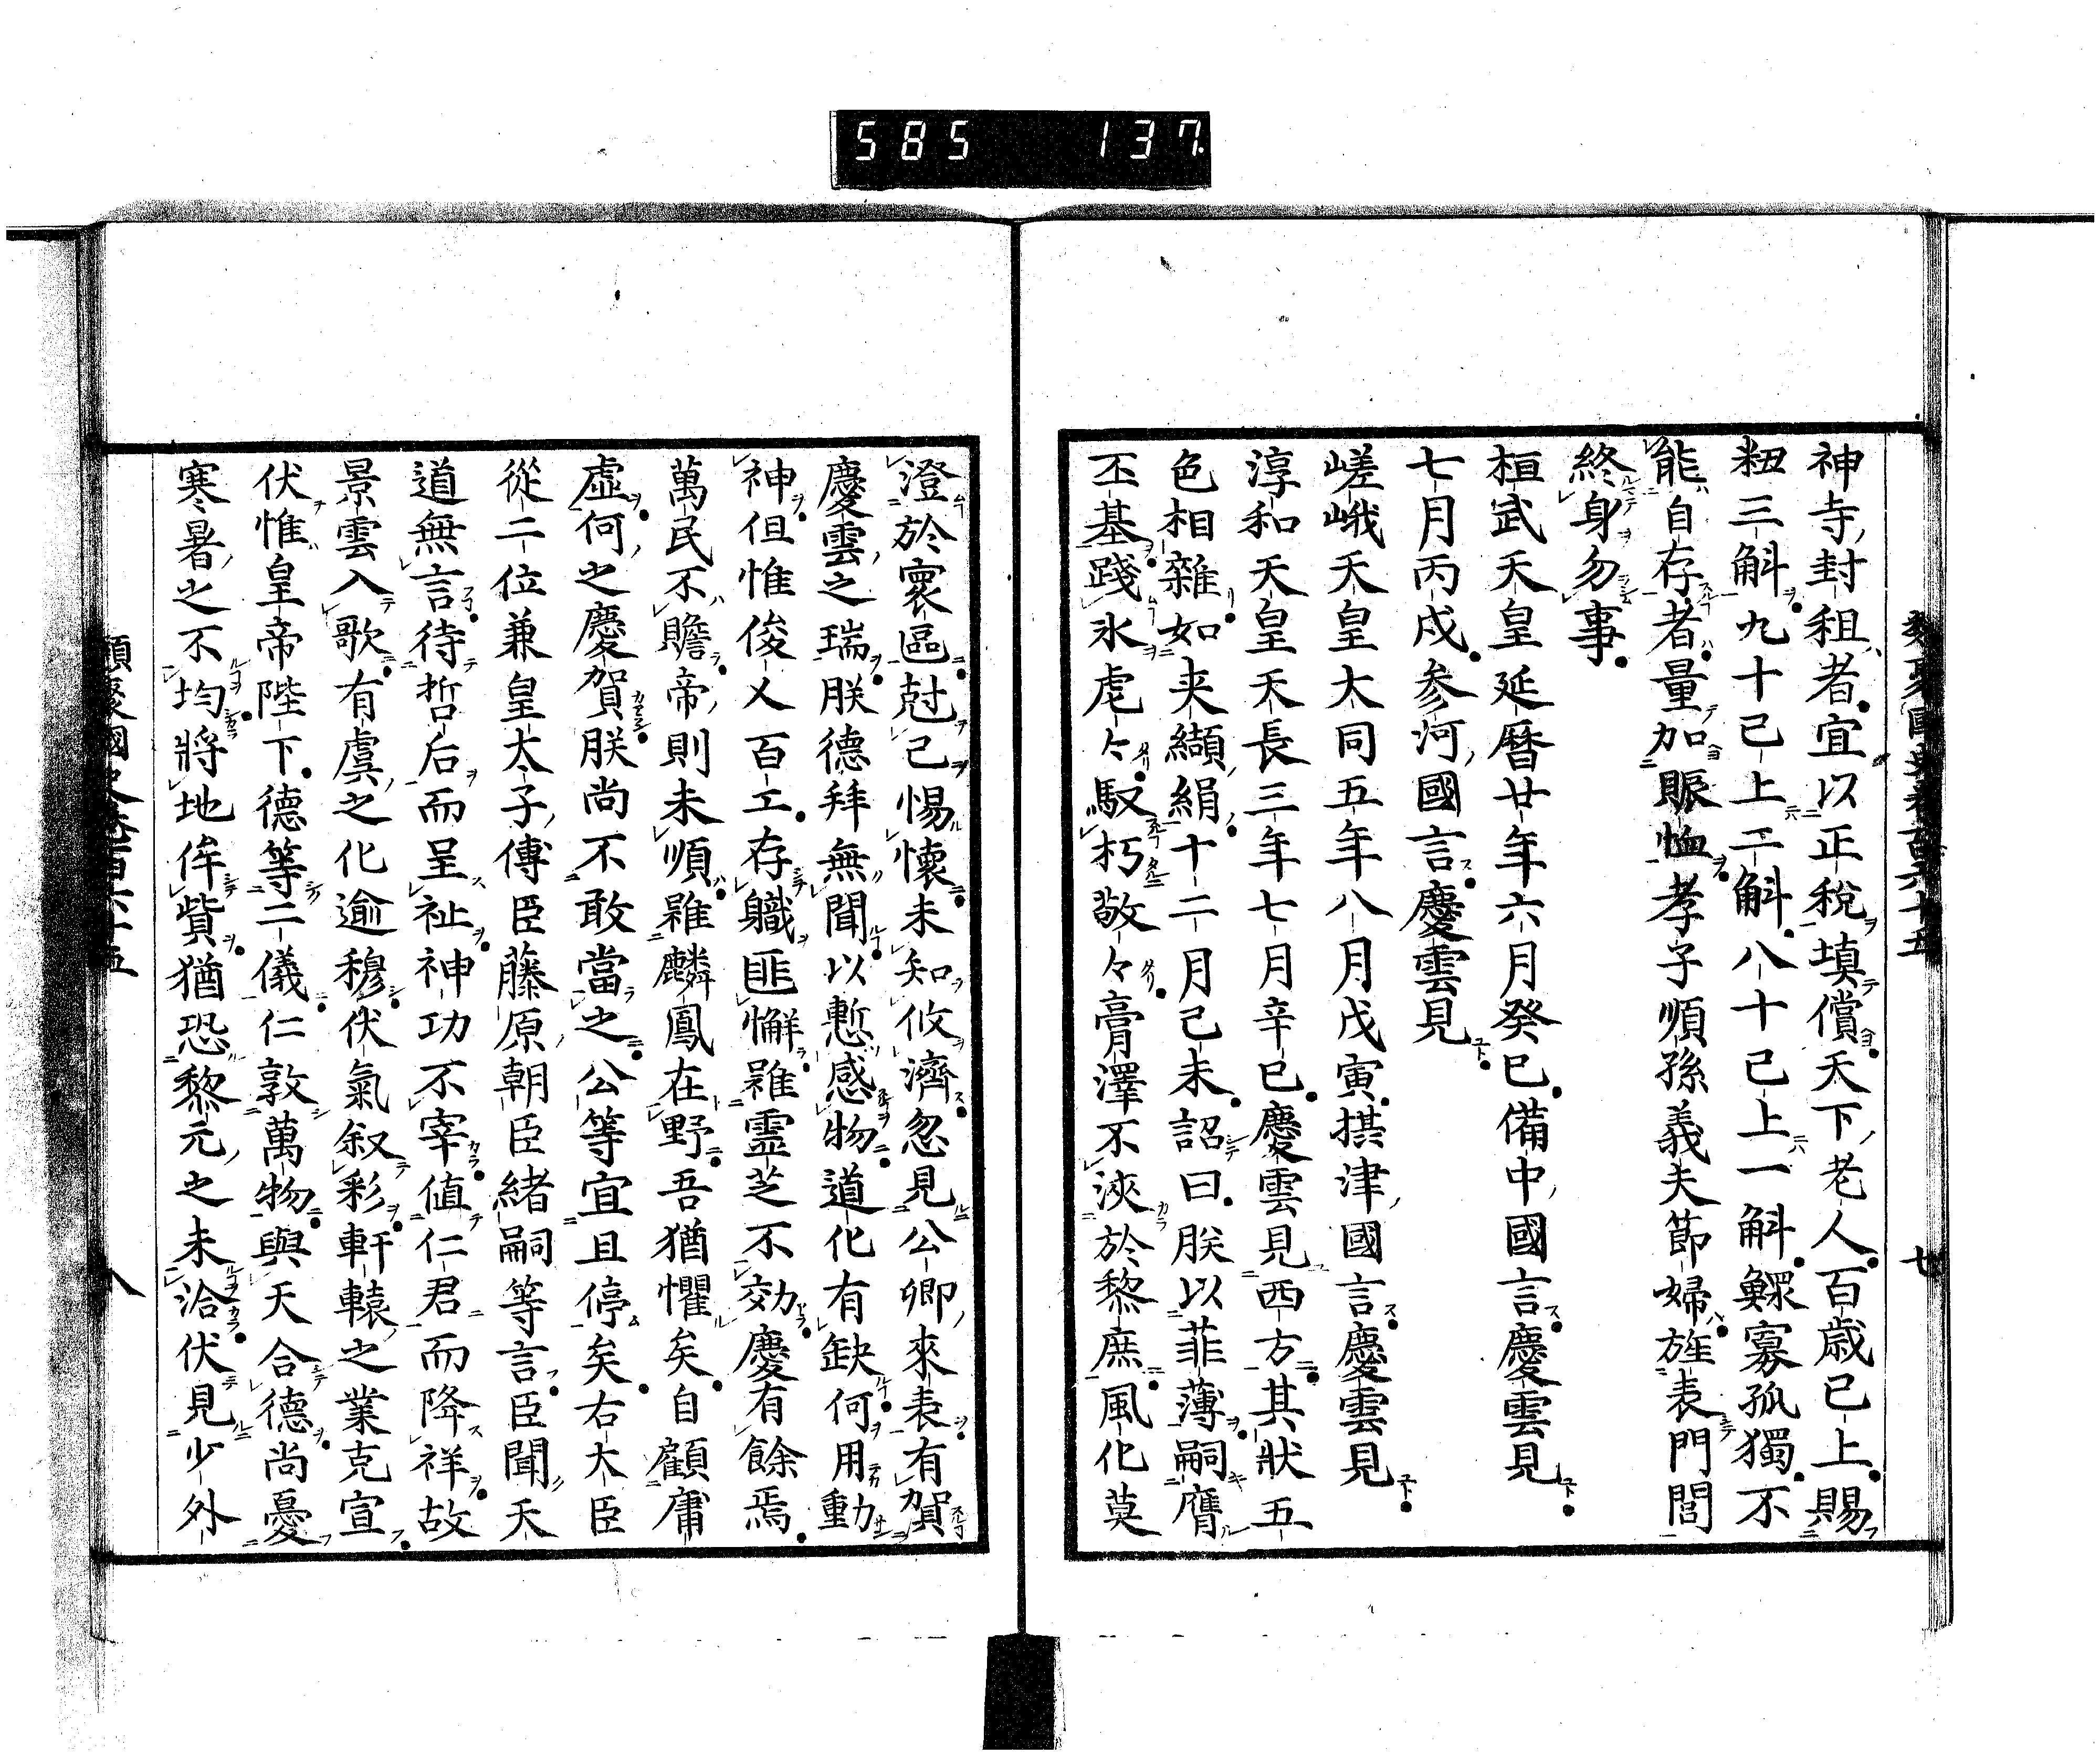 585 137
神寺封租者宜以正稅填償天下老人百歲已上賜
籾三斛九十已上二斛八十已上一斛鰥寡孤獨不
能自存者量加賑恤孝子順孫義夫節婦旌表門閭
終身勿事
桓武天皇延曆廿年六月癸巳備中國言慶雲見
七月丙戌參河國言慶雲見
嵯峨天皇大同五年八月戊寅攝津國言慶雲見
淳和天皇天長三年七月辛巳慶雲見西方其狀五
色相雜如夾纈絹十二月己未詔曰朕以菲薄嗣膺
丕基踐氷虎々馭朽敬々膏澤不浹於黎庶風化莫
澄於寰區尅己惕懷未知攸濟忽見公卿來表有賀
慶雲之瑞朕德拜無聞以慙感物道化有缺何用動
神但惟俊乂百工存職匪懈雖霊芝不効慶有餘焉
萬民不贍帝則未順雖麟鳳在野吾猶懼矣自顧庸
虛何之慶賀朕尚不敢當之公等宜且停矣右大臣
從二位兼皇太子傅臣藤原朝臣緒嗣等言臣聞天
道無言待哲后而呈祉神功不宰値仁君而降祥故
景雲入歌有虞之化逾穆伏氣叙彩軒轅之業克宣
伏惟皇帝陛下德等二儀仁敦萬物與天合德尚憂
寒暑之不均將地侔貲猶恐黎元之未洽伏見少外
類聚國史卷百六十五
七
八